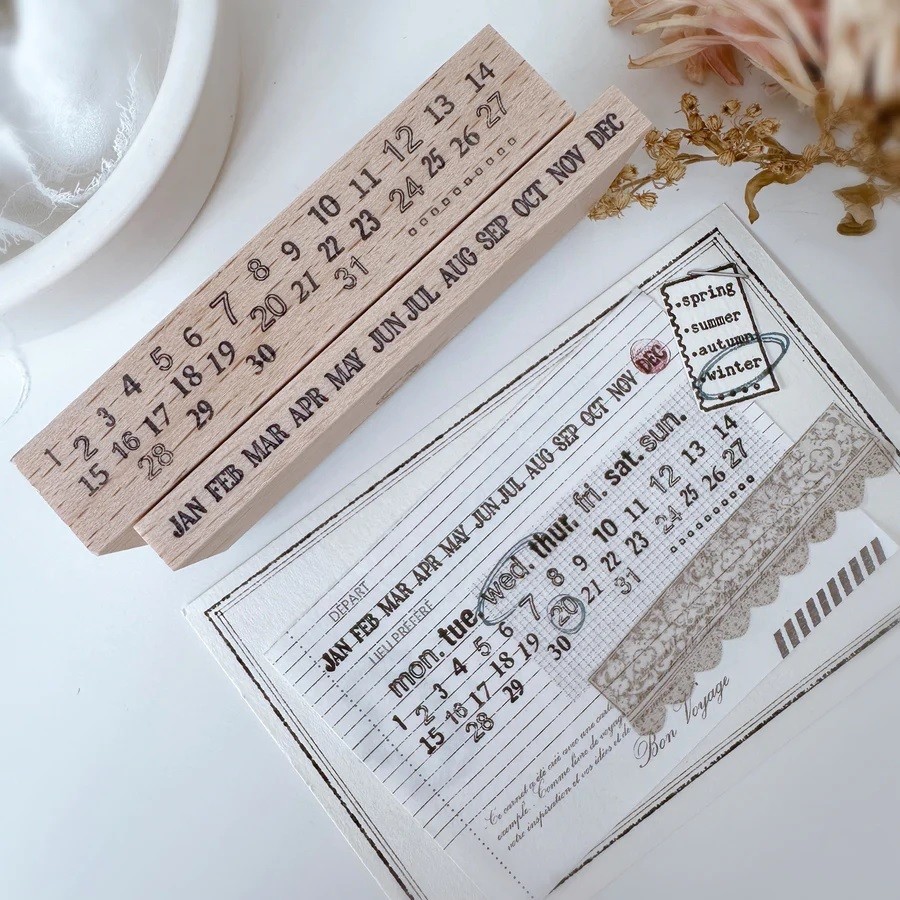 1 2 3 4 5 6 7 8 9 10 11 12 13 14
15 16 17 18 19 20 21 22 23 24 25 26 27
28 29 30 31
JAN FEB MAR APR MAY JUN JUL AUG SEP OCT NOV DEC
•spring
•summer
•autumn
•winter
DÉPART
JAN FEB MAR APR MAY JUN JUL AUG SEP OCT NOV DEC
LIEU PRÉFÉRÉ
mon. tue. wed. thur. fri. sat. sun.
1 2 3 4 5 6 7 8 9 10 11 12 13 14
15 16 17 18 19 20 21 22 23 24 25 26 27
28 29 30 31
Ce carnet a été créé avec une
exemple. Comme livre de voyage
votre inspiration et vos idées et de
Bon Voyage